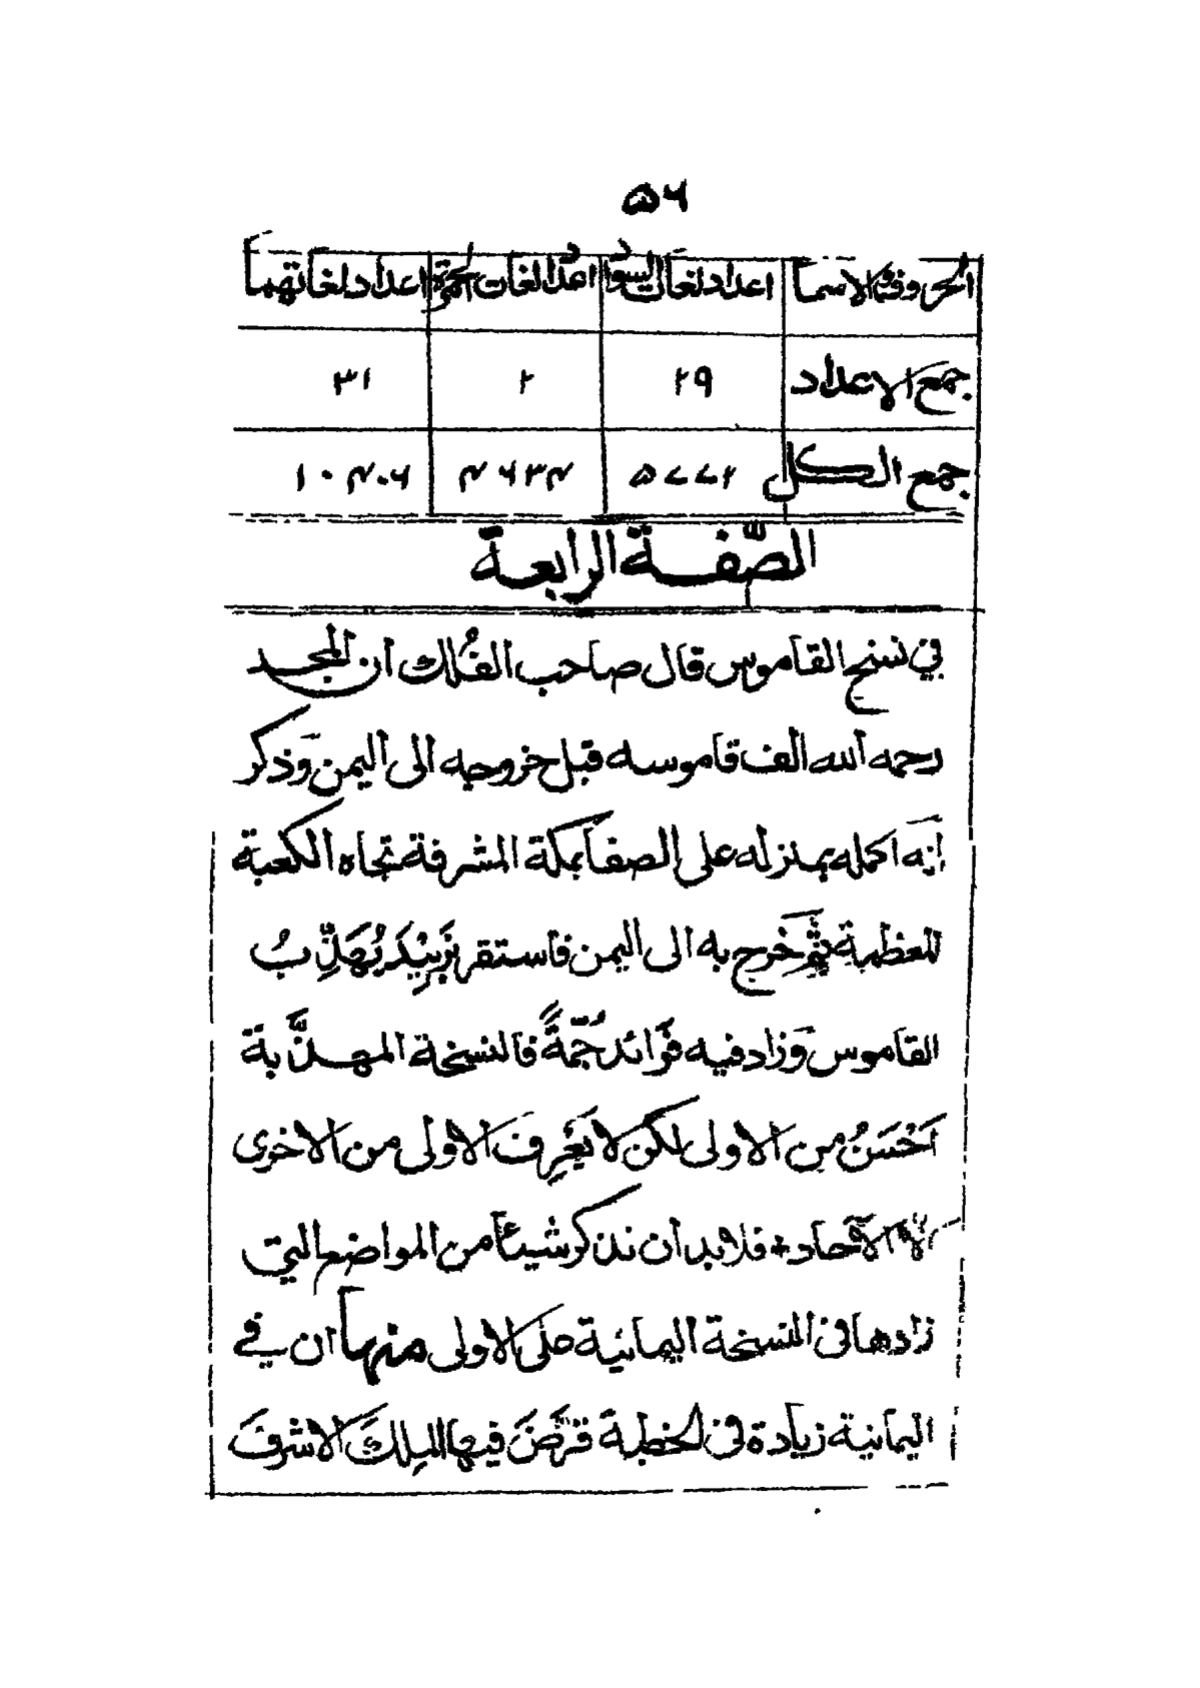 ۵۶
الحروف الاسما اعداد لغات السواد اعداد لغات الحمرة اعداد لغاتهما
جمع الاعداد ۲۹ ۲ ۳۱
جمع الكل ۵۷۷۲ ۴۶۳۴ ۱۰۴۰۶
الصّفة الرابعة
في نسخ القاموس قال صاحب الفُلك ان المجد
رحمه الله الف قاموسه قبل خروجه الى اليمن وَذكر
انه اكمله بمنزله على الصفا بمكة المشرفة تجاه الكعبة
المعظمة ثم خَرج به الى اليمن فاستقر بزَبِيْدَ يُهَذِّبُ
القاموس وَزاد فيه فوَائد جُمّةً فالنسخة المهذَّبة
اَحْسَنُ من الاولى لكن لا يَعْرِف الاولى من الاخرى
الا الآحاد فلا بد ان نذكر شيئاً من المواضع التي
زادها في النسخة اليمانية على الاولى منها ان في
اليمانية زيادة في الخطبة قرَّضَ فيها المِلكَ الاشرفَ